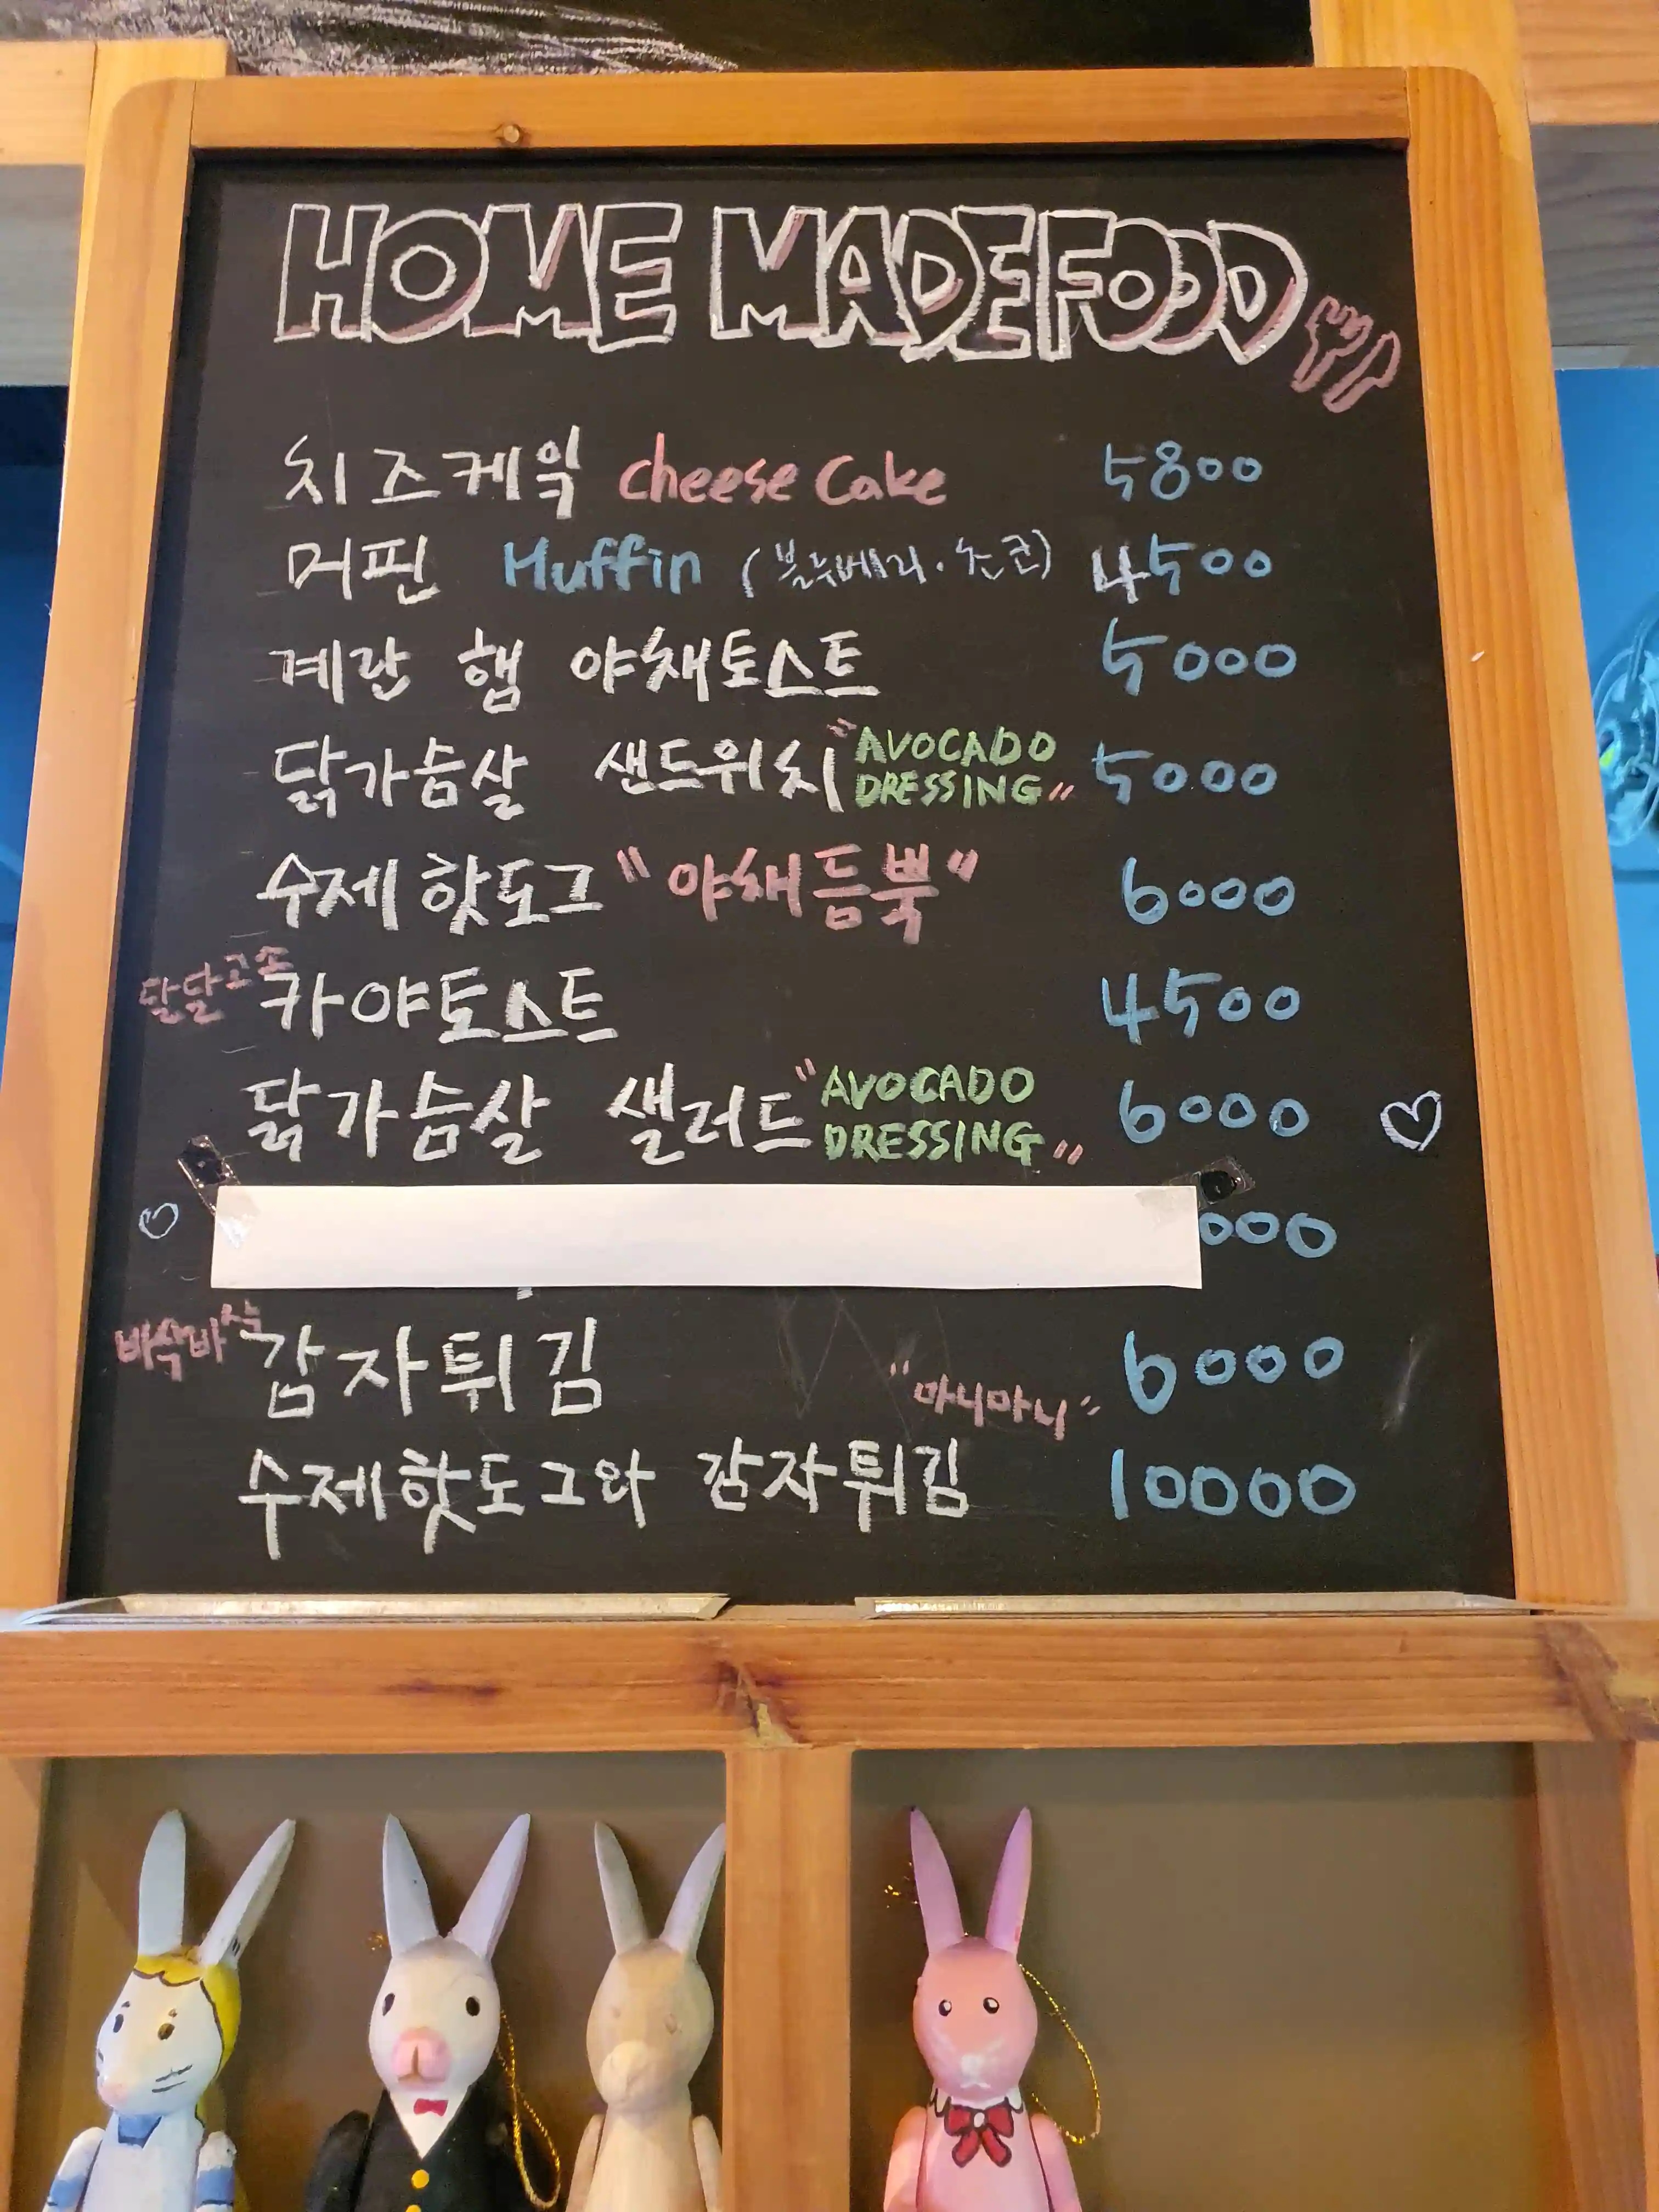 HOME MADE FOOD
치즈케익 cheese Cake 5800
머핀 Muffin (블루베리·초코) 4500
계란 햄 야채토스트 5000
닭가슴살 샌드위치 "AVOCADO DRESSING" 5000
수제핫도그 "야채듬뿍" 6000
달달고소 카야토스트 4500
닭가슴살 샐러드 "AVOCADO DRESSING" 6000
000
바삭바삭 감자튀김 "마니마니" 6000
수제핫도그와 감자튀김 10000